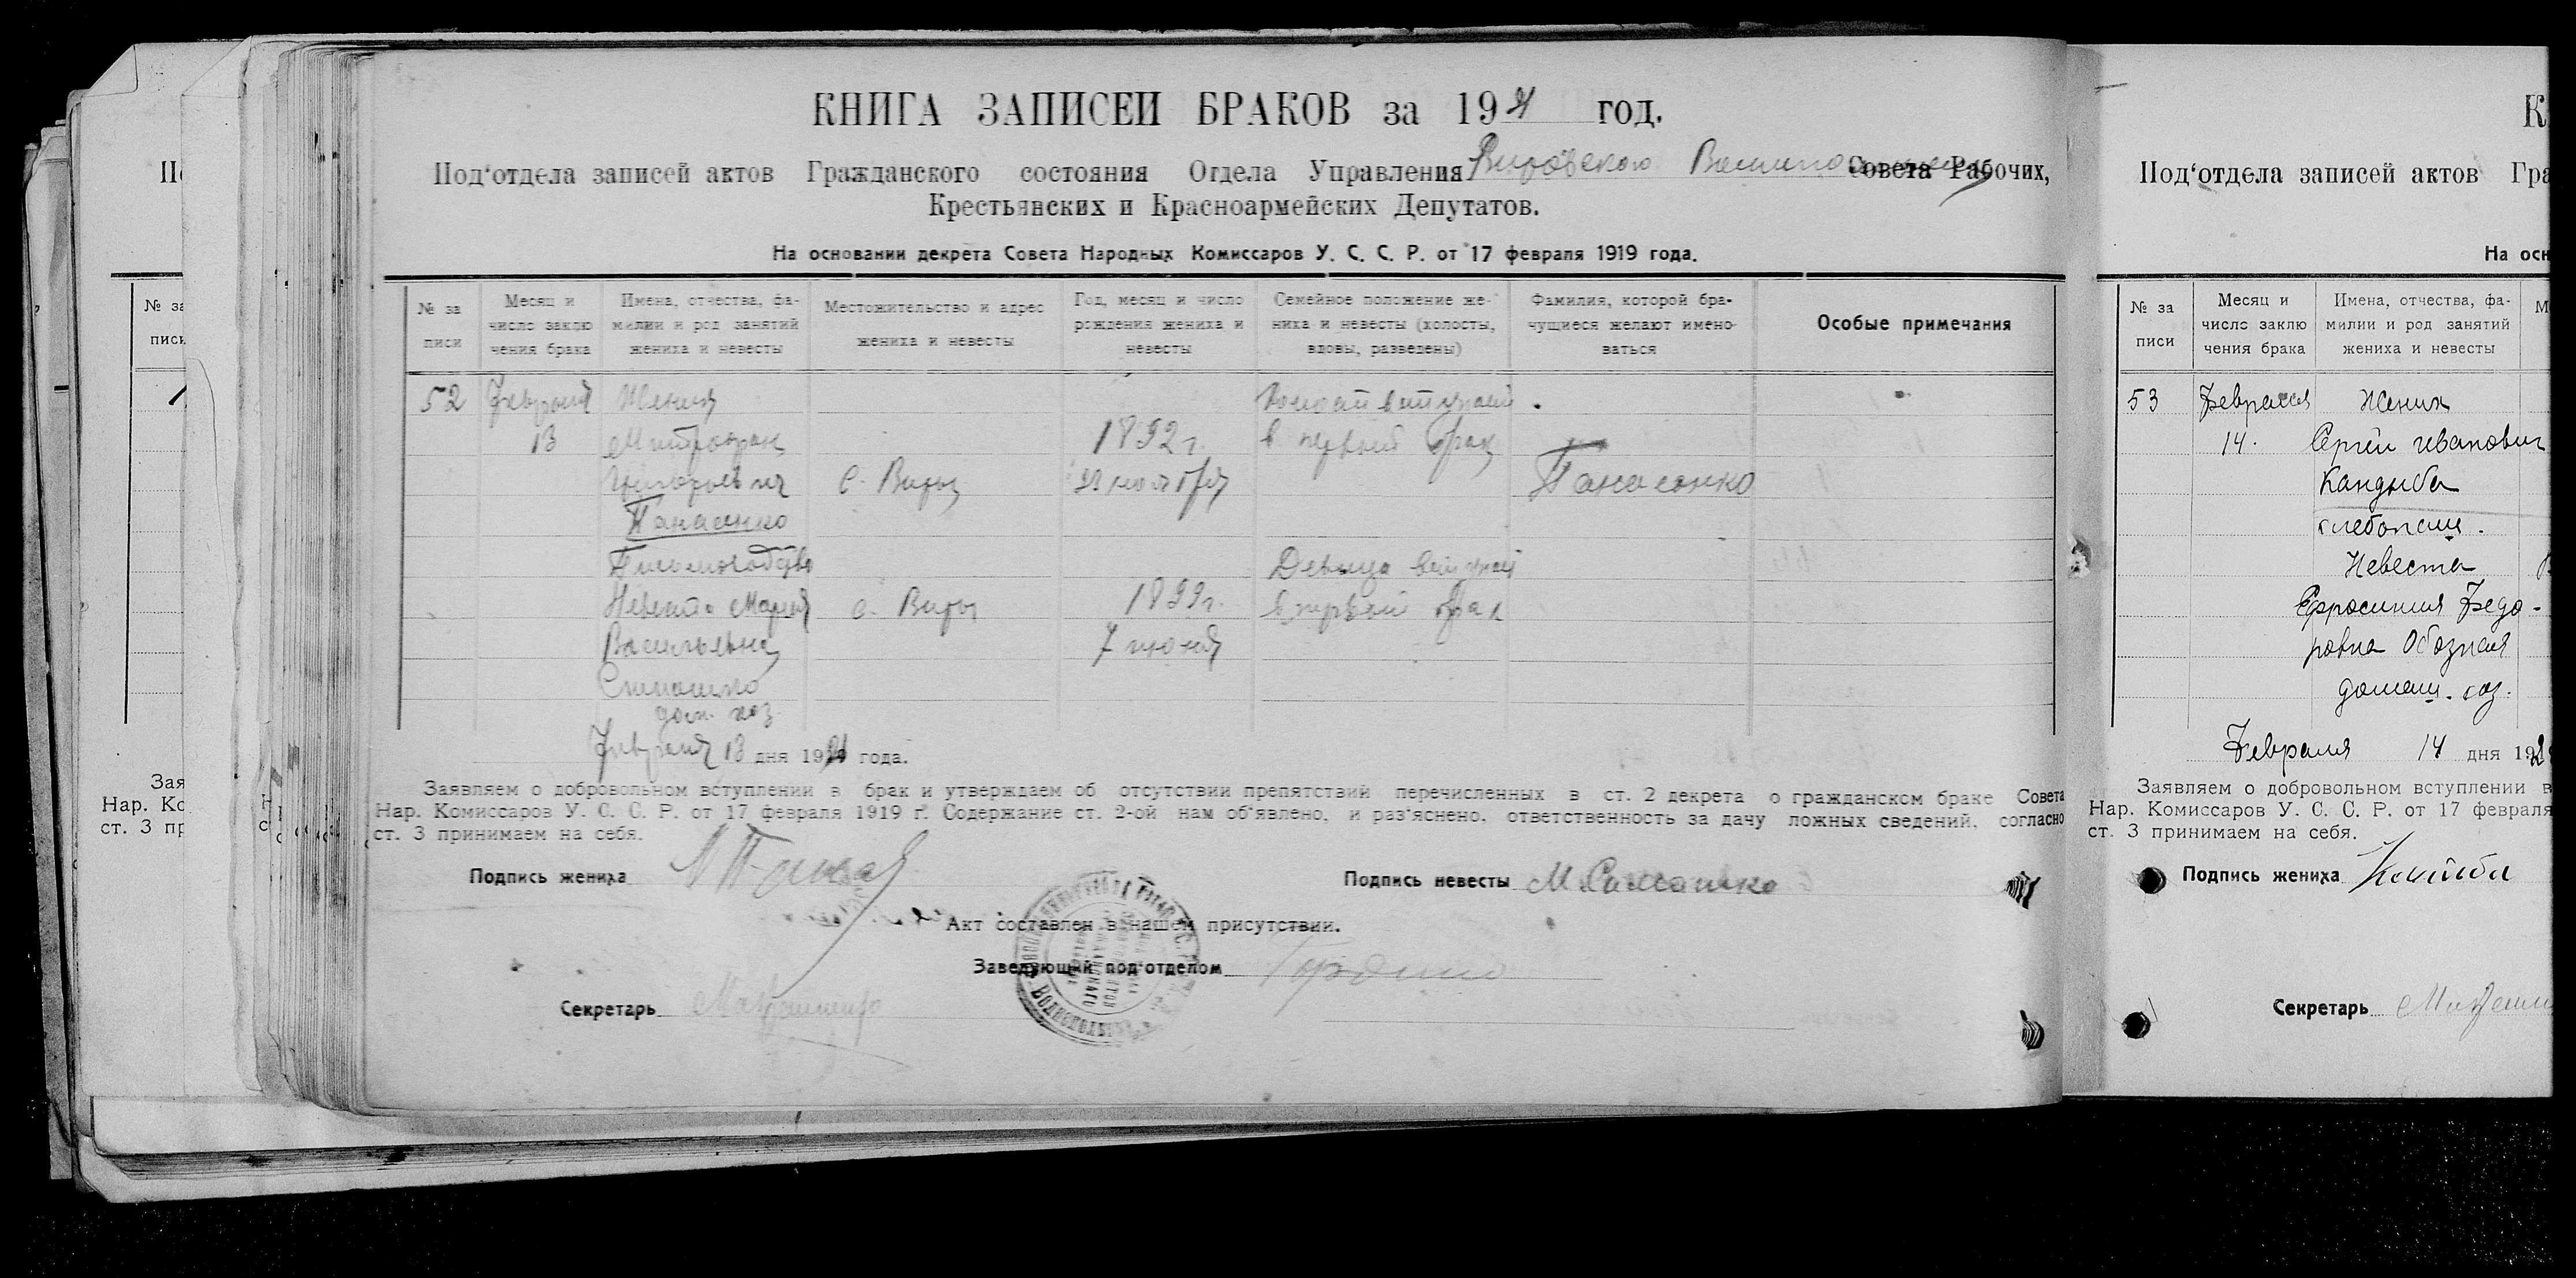 КНИГА ЗАПИСЕЙ БРАКОВ за 1921 год.
Под'отдела записей актов Гражданского состояния Отдела Управления Совета Рабочих,
Крестьянских и Красноармейских Депутатов.
На основании декрета Совета Народных Комиссаров У. С. С. Р. от 17 февраля 1919 года.
№ за писи
Месяц и число заклю чения брака
Имена, отчества, фа- милии и род занятий жениха и невесты
Местожительство и адрес жениха и невесты
Год, месяц и число рождения жениха и невесты
Семейное положение же- ниха и невесты (холосты, вдовы, разведены)
Фамилия, которой бра- чущиеся желают имено- ваться
Особые примечания
52 Февраля Жених
13 Митрофан 1892 г. в первый брак
Григорьевич с. Виры ноября Панасенко
Панасенко
Письмоводство Девица
Невеста Мария с. Виры 1899 г. в первый брак
Васильевна 7 июня
дом. хоз.
Февраля 13 дня 1921 года.
Заявляем о добровольном вступлении в брак и утверждаем об отсутствии препятствий перечисленных в ст. 2 декрета о гражданском браке Совета
Нар. Комиссаров У. С. С. Р. от 17 февраля 1919 г. Содержание ст. 2-ой нам об'явлено, и раз'яснено, ответственность за дачу ложных сведений, согласно
ст. 3 принимаем на себя.
Подпись жениха
Подпись невесты
Акт составлен в нашем присутствии.
Заведующий под'отделом
Секретарь
К
Под'отдела записей актов Гра
На осн
№ за писи
Месяц и число заклю чения брака
Имена, отчества, фа- милии и род занятий жениха и невесты
М
53 Февраля Жених
14. Сергей Иванович
Кандыба
хлебопаш.
Невеста
Ефросиния Федо-
ровна Обозная
домаш. хоз.
Февраля 14 дня 192
Заявляем о добровольном вступлении в
Нар. Комиссаров У. С. С. Р. от 17 февраля
ст. 3 принимаем на себя.
Подпись жениха
Секретарь
№ за
писи
Зая
Нар. Ко
ст. 3 пр